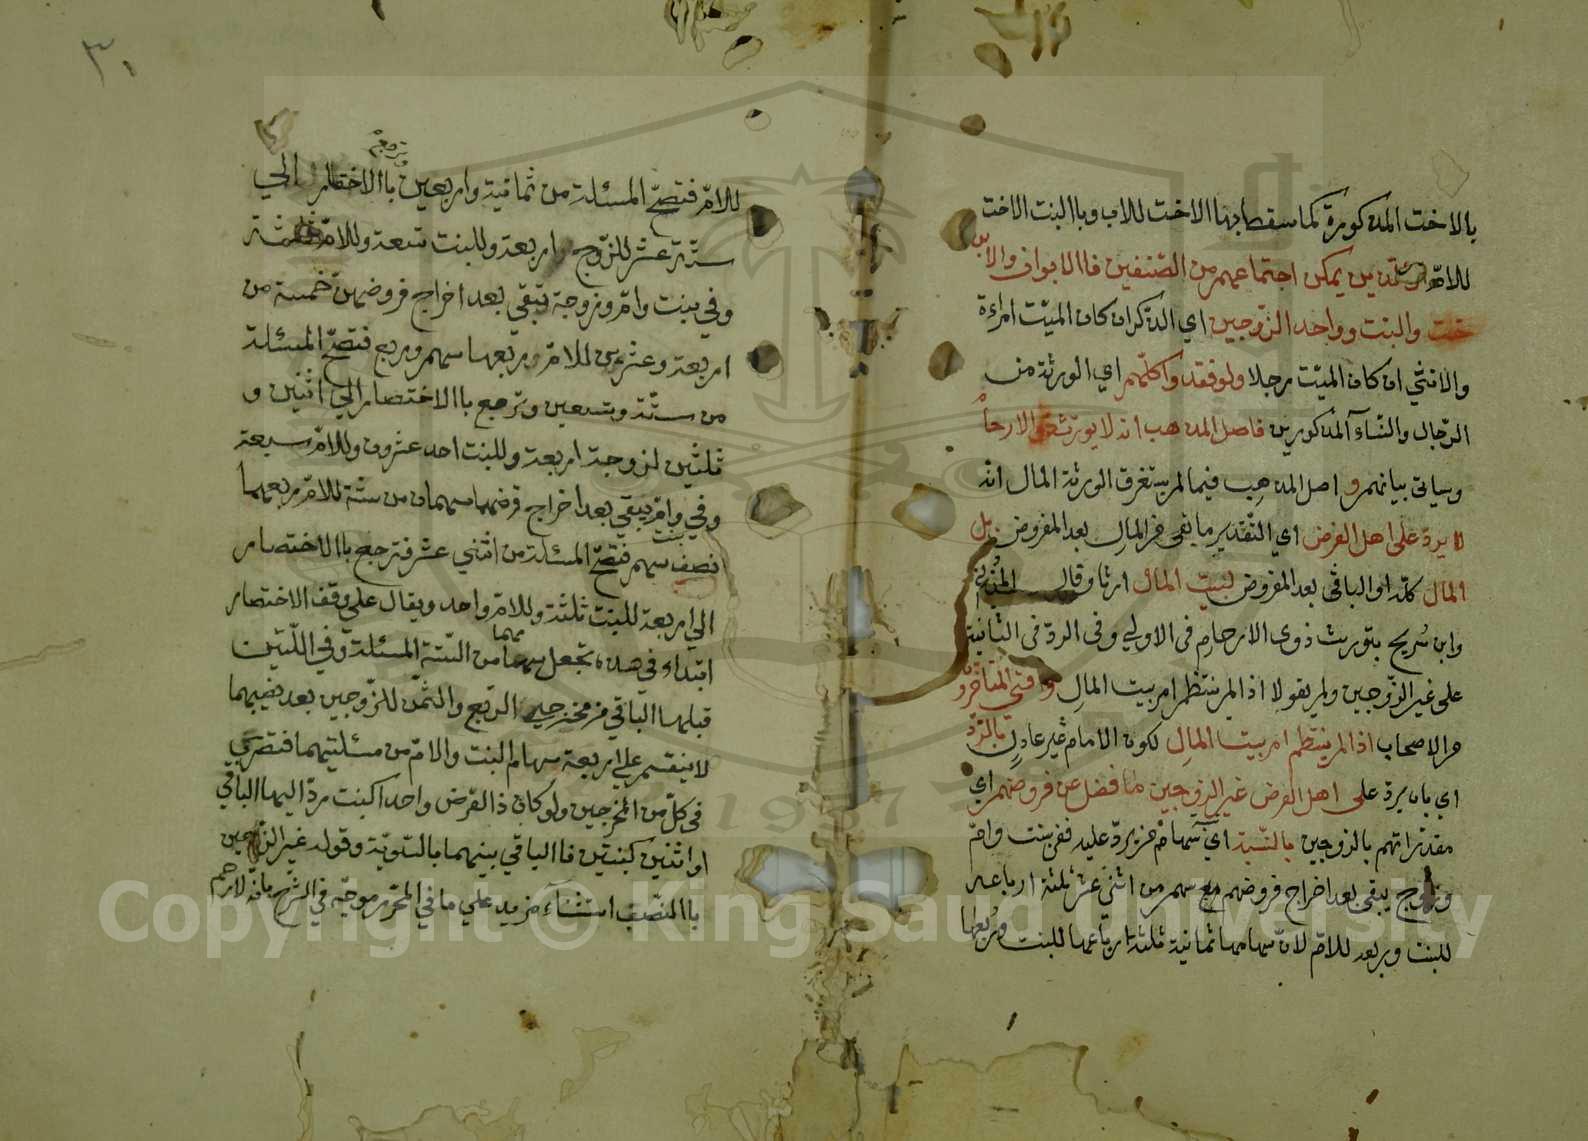 بالاخت المذكورة كما سقط بها الاخت للاب وبالبنت الاخت
للام والذين يمكن اجتماعهم من الصنفين فالابوان والابن
والبنت وواحد الزوجين اي الذكر ان كان الميت امراءة
والانثى ان كان الميت رجلا ولو فقدوا كلهم اي الورثة من
الرجال والنساء المذكورين فاصل المذهب انه لا يورث ذوو الارحام
وسياتي بيانهم و اصل المذهب فيما لم يستغرق الورثة المال انه
لا يرد على اهل الفرض اي التقدير ما بقي من المال بعد المفروض بل
المال كله او الباقي بعد المفروض لبيت المال ارثا وقال المزني
وابن سريج بتوريث ذوي الارحام في الاولى وفي الرد في الثانية
على غير الزوجين ولم يقولا اذا لم ينتظم امر بيت المال وافتى المتاخرون
من الاصحاب اذا لم ينتظم امر بيت المال لكون الامام غير عادل بالرد
اي بان يرد على اهل الفرض غير الزوجين ما فضل عن فروضهم اي
مقدراتهم بالزوجين بالنسبة اي سهام من يرد عليه ففي بنت وام
وزوج يبقى بعد اخراج فروضهم سهم من اثنى عشر ثلثة ارباعه
للبنت وربعه للام لان سهامهما ثمانية ثلثة ارباعها للبنت وربعها
٣٠
للام فتصح المسئلة من ثمانية واربعين وترجع بالاختصار الى
ستة عشر للزوج اربعة وللبنت تسعة وللام ثلثة
وفي بنت وام وزوجة تبقى بعد اخراج فروضهن خمسة من
اربعة وعشرين للام ربعها سهم وربع فتصح المسئلة
من ستة وتسعين وترجع بالاختصار الى اثنين و
ثلثين لزوجة اربعة وللبنت احد عشرون وللام سبعة
وفي بنت وام يبقى بعد اخراج فرضهما سهمان من ستة للام ربعهما
نصف سهم فتصح المسئلة من اثنى عشر فترجع بالاختصار
الى اربعة للبنت ثلثة وللام واحد ويقال على وقف الاختصار
ابتداء في هذه تجعل سهامهما من الستة المسئلة وفي اللتين
قبلها الباقي من مخرجي الربع والثمن للزوجين بعد نصيبهما
لا ينقسم على اربعة سهام البنت والام من مسئلتيهما فتضرب
في كل من المخرجين ولو كان ذا الفرض واحدا كبنت رد اليها الباقي
او اثنين كبنتين فالباقي بينهما بالسوية وقوله غير الزوجين
بالنصب استثناء مزيد على ما في المحرر موجه في الشرح بانه لا رحم